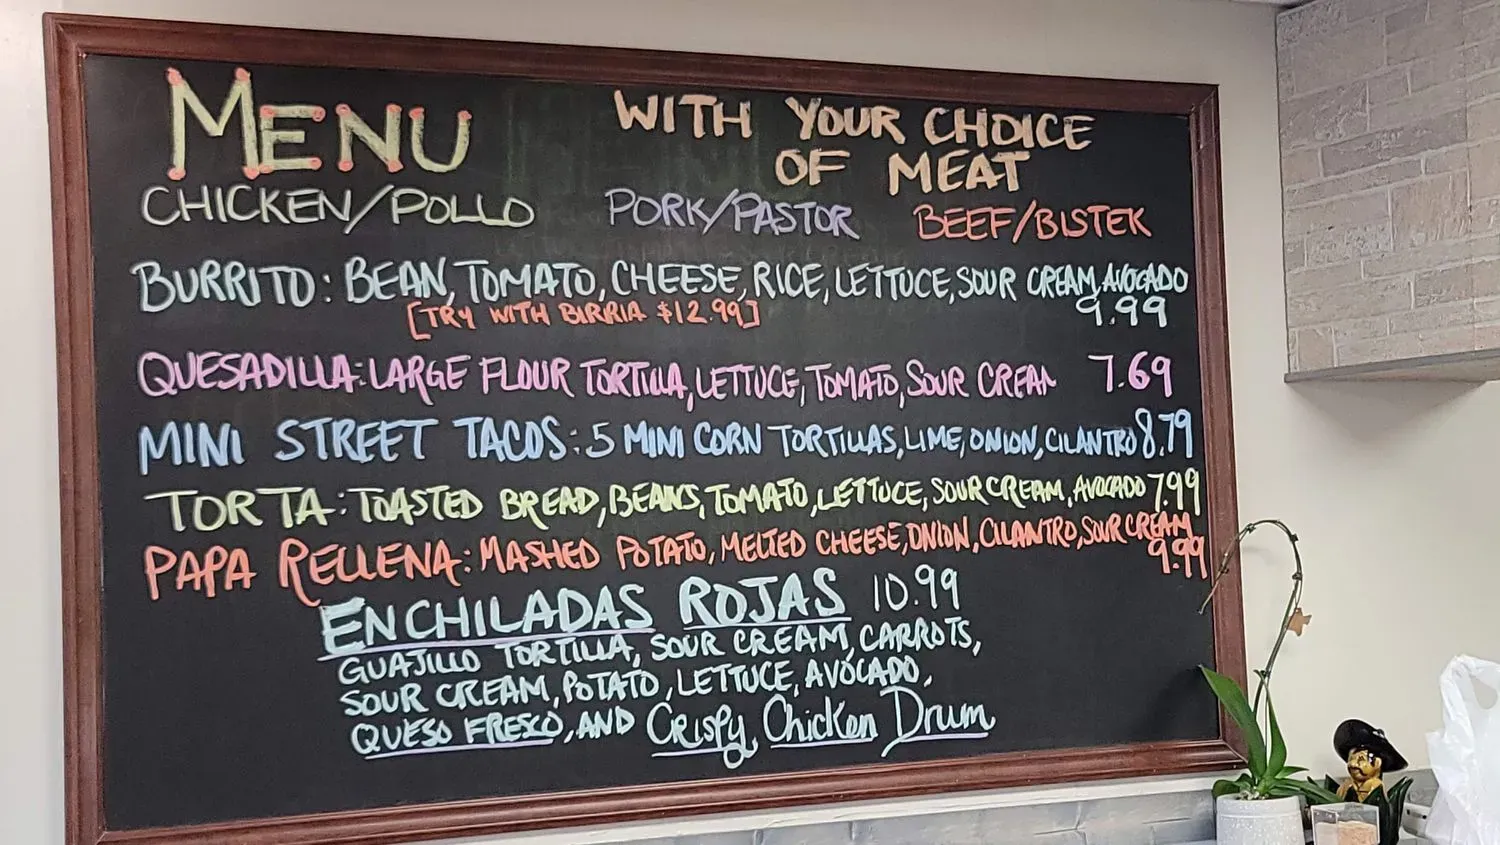 MENU
WITH YOUR CHOICE
OF MEAT
CHICKEN/POLLO PORK/PASTOR BEEF/BISTEK
BURRITO: BEAN, TOMATO, CHEESE, RICE, LETTUCE, SOUR CREAM, AVOCADO
[TRY WITH BIRRIA $12.99] 9.99
QUESADILLA: LARGE FLOUR TORTILLA, LETTUCE, TOMATO, SOUR CREAM 7.69
MINI STREET TACOS: 5 MINI CORN TORTILLAS, LIME, ONION, CILANTRO 8.79
TORTA: TOASTED BREAD, BEANS, TOMATO, LETTUCE, SOUR CREAM, AVOCADO 7.99
PAPA RELLENA: MASHED POTATO, MELTED CHEESE, ONION, CILANTRO, SOUR CREAM
9.99
ENCHILADAS ROJAS 10.99
GUAJILLO TORTILLA, SOUR CREAM, CARROTS,
SOUR CREAM, POTATO, LETTUCE, AVOCADO,
QUESO FRESCO, AND Crispy Chicken Drum